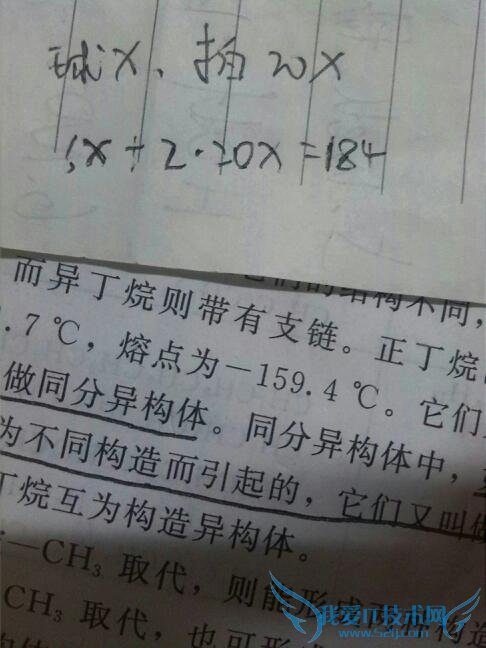 球X、拍20X
5X+2·20X=184
们的结构不同,
而异丁烷则带有支链。正丁烷
.7℃,熔点为-159.4℃。它们
做同分异构体。同分异构体中,
为不同构造而引起的,它们又叫做
丁烷互为构造异构体。
—CH₃ 取代,则能形成
CH₃ 取代,也可形
我爱IT技术网
www.52ij.com